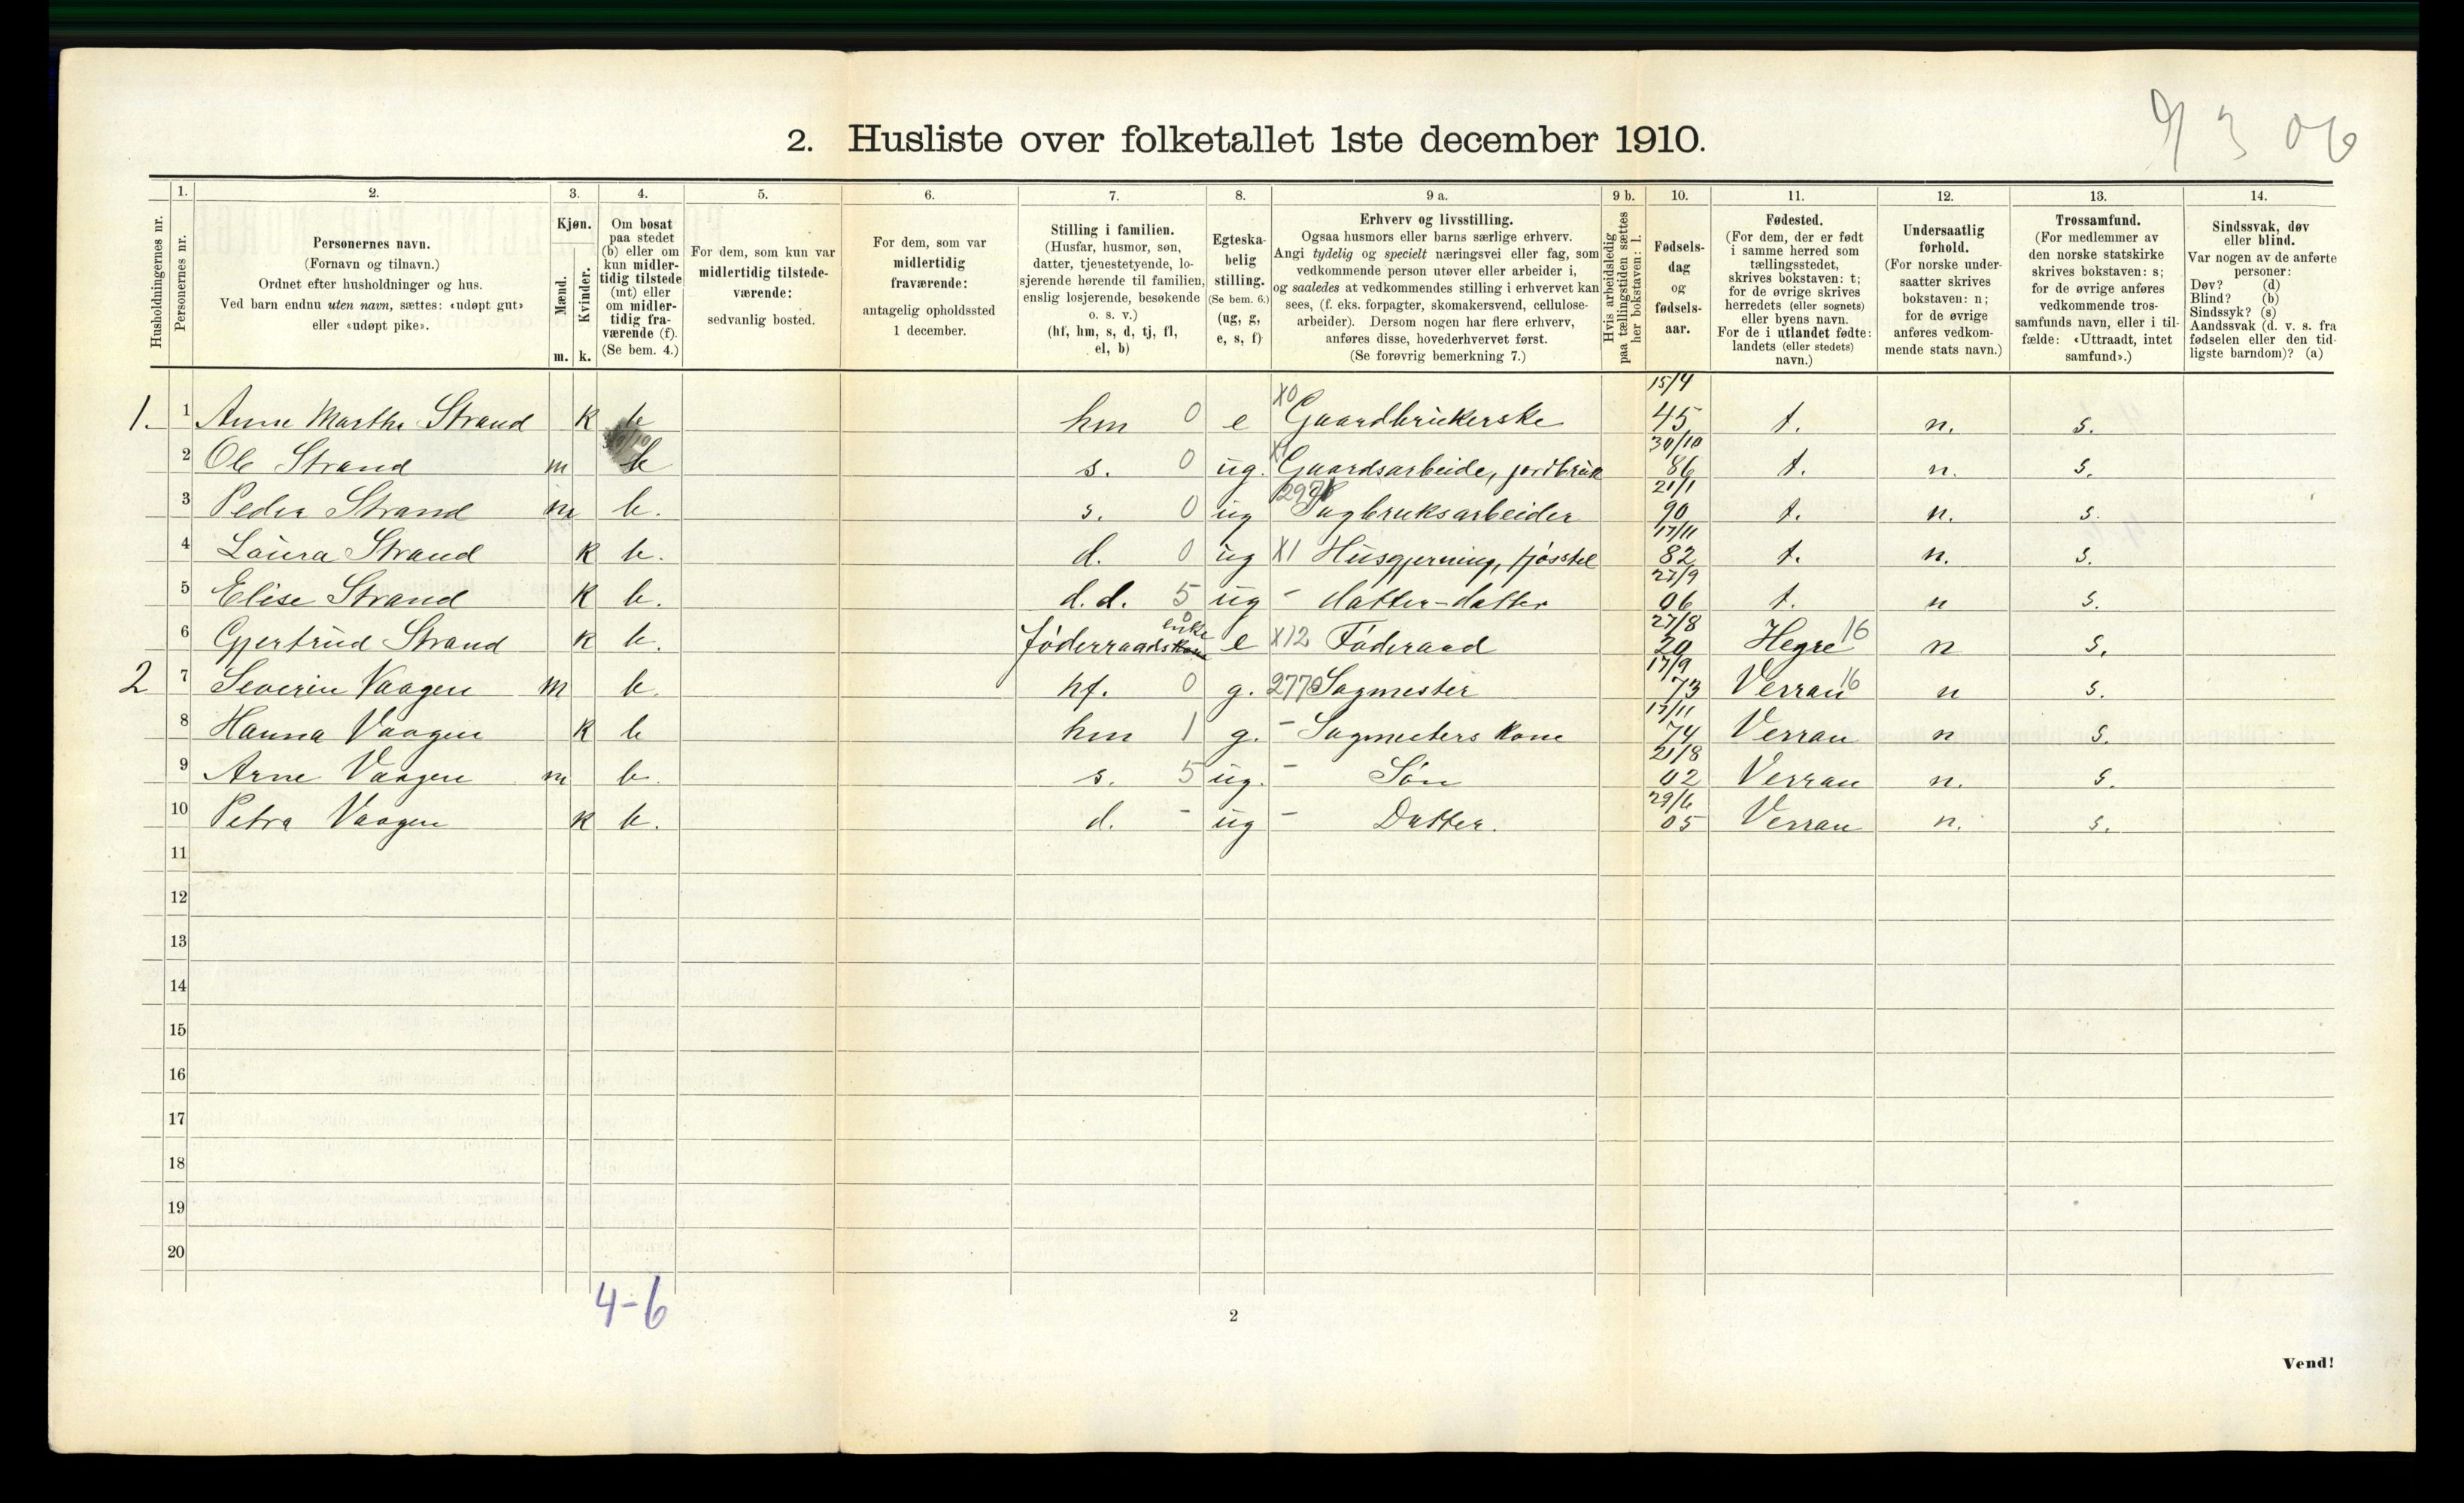 9/3 06
2. Husliste over folketallet 1ste december 1910.
Husholdningernes nr.
1. Personernes nr.
2. Personernes navn. (Fornavn og tilnavn.) Ordnet efter husholdninger og hus. Ved barn endnu uten navn, sættes: «udøpt gut» eller «udøpt pike».
3. Kjøn. Mænd. m. Kvinder. k.
4. Om bosat paa stedet (b) eller om kun midlertidig tilstede (mt) eller om midlertidig fraværende (f). (Se bem. 4.)
5. For dem, som kun var midlertidig tilstedeværende: sedvanlig bosted.
6. For dem, som var midlertidig fraværende: antagelig opholdssted 1 december.
7. Stilling i familien. (Husfar, husmor, søn, datter, tjenestetyende, losjerende hørende til familien, enslig losjerende, besøkende o. s. v.) (hf, hm, s, d, tj, fl, el, b)
8. Egteskabelig stilling. (Se bem. 6.) (ug, g, e, s, f)
9 a. Erhverv og livsstilling. Ogsaa husmors eller barns særlige erhverv. Angi tydelig og specielt næringsvei eller fag, som vedkommende person utøver eller arbeider i, og saaledes at vedkommendes stilling i erhvervet kan sees, (f. eks. forpagter, skomakersvend, cellulosearbeider). Dersom nogen har flere erhverv, anføres disse, hovederhvervet først. (Se forøvrig bemerkning 7.)
9 b. Hvis arbeidsledig paa tællingstiden sættes her bokstaven: l.
10. Fødselsdag og fødselsaar.
11. Fødested. (For dem, der er født i samme herred som tællingsstedet, skrives bokstaven: t; for de øvrige skrives herredets (eller sognets) eller byens navn. For de i utlandet fødte: landets (eller stedets) navn.)
12. Undersaatlig forhold. (For norske undersaatter skrives bokstaven: n; for de øvrige anføres vedkommende stats navn.)
13. Trossamfund. (For medlemmer av den norske statskirke skrives bokstaven: s; for de øvrige anføres vedkommende trossamfunds navn, eller i tilfælde: «Uttraadt, intet samfund».)
14. Sindssvak, døv eller blind. Var nogen av de anførte personer: Døv? (d) Blind? (b) Sindssyk? (s) Aandssvak (d. v. s. fra fødselen eller den tidligste barndom)? (a)
1. 1 Anne Martha Strand k b hm 0 e X0 Gaardbrukerske 15/4 45 t. n. s.
2 Ole Strand m b s. 0 ug. X1 Gaardsarbeide, jordbruk 30/10 86 t. n. s.
3 Peder Strand m b. s. 0 ug Sagbruksarbeider 21/1 90 t. n. s.
4 Laura Strand k b. d. 0 ug X1 Husgjerning, fjøsstel 17/11 82 t. n. s.
5 Elise Strand k b. d.d. 5 ug - datter-datter 27/9 06 t. n s.
6 Gjertrud Strand k b. Føderraadskone enke 0 e X12 Føderaad 27/8 20 Hegre 16 n s.
2 7 Severin Vaagen m b. hf. 0 g. 2770 Sagmester 17/9 73 Verran 16 n s.
8 Hanna Vaagen k b hm 1 g. - Sagmesters kone 13/11 74 Verran n s.
9 Arne Vaagen m b. s. 5 ug. - Søn 21/8 02 Verran n. s.
10 Petra Vaagen k b. d. - ug - Datter. 29/6 05 Verran n. s.
11
12
13
14
15
16
17
18
19
20
4-6
2
Vend!